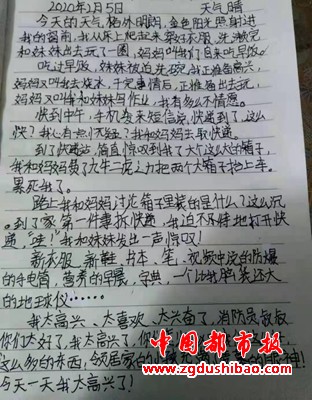 2020年1月5日 天气晴
今天的天气格外明朗,金色阳光照射进
我的窗前,我从床上爬起来穿好衣服,洗漱完
和妹妹出去玩了一圈,妈妈叫我们回来吃早饭。
吃过早饭,妹妹被迫洗碗,我正准备高兴,
妈妈又叫我去烧水,干完事情后,正准备出去玩,
妈妈又叫我和妹妹写作业,我有多么不情愿。
快到中午,手机发来短信说,快递到了,这么
快?我心有点怀疑?我和妈妈去取快递。
到了快递站,简直惊呆到我了大有这么大的箱子,
我和妈妈费了九牛二虎之力把两个大箱子抬上车。
累死我了。
路上我和妈妈讨论箱子里装的是什么?这么沉。
到了家第一件事拆快递,我迫不及待地打开快
递,"哇!"我和妹妹发出一声惊叹!
新衣服、新鞋、书本、笔、视频中说的防爆
的手电筒,营养的早晨,字典,一个比我脑袋还大
的地球仪……
我太高兴、太喜欢、太兴奋了,消防员叔叔
你们太好了,我太高兴了,
这么多的东西,邻居家的小孩
天一天我太高兴了!
中国都市报
www.zgdushibao.com